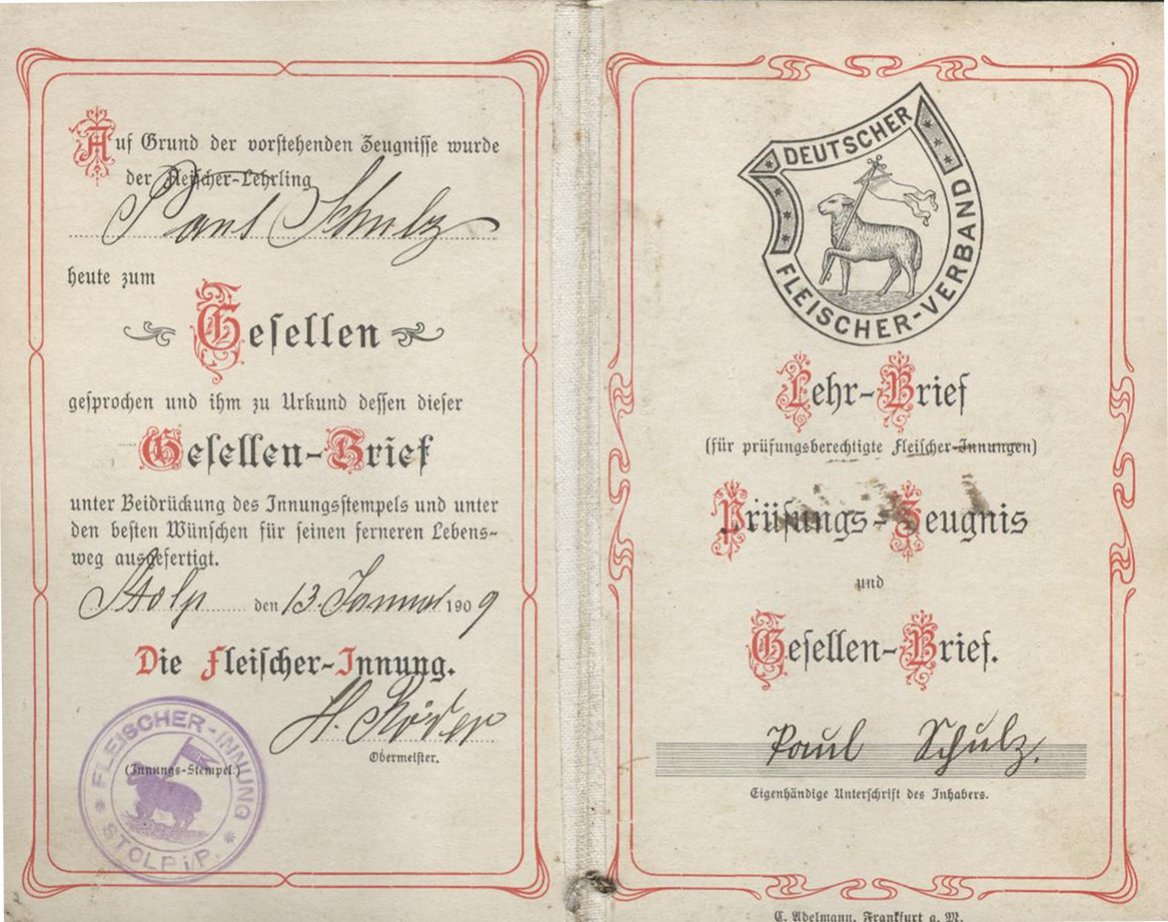 Auf Grund der vorstehenden Zeugnisse wurde
der Fleischer-Lehrling
Paul Schulz
heute zum
Gesellen
gesprochen und ihm zu Urkund dessen dieser
Gesellen-Brief
unter Beidrückung des Innungsstempels und unter
den besten Wünschen für seinen ferneren Lebens-
weg ausgefertigt.
Stolp den 13. Januar 1909
Die Fleischer-Innung.
H. Röder
Obermeister.
(Innungs-Stempel.)
FLEISCHER-INNUNG
STOLP i/P.
DEUTSCHER
FLEISCHER-VERBAND
Lehr-Brief
(für prüfungsberechtigte Fleischer-Innungen)
Prüfungs-Zeugnis
und
Gesellen-Brief.
Paul Schulz.
Eigenhändige Unterschrift des Inhabers.
C. Adelmann, Frankfurt a. M.